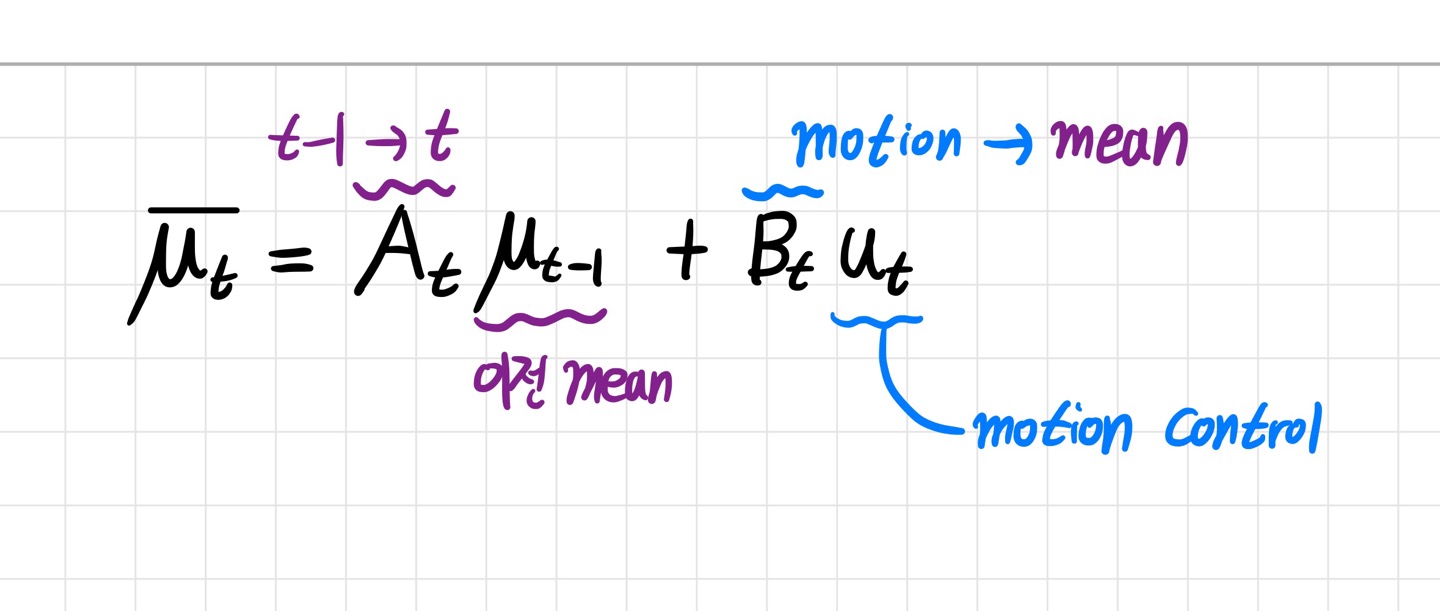 t-1 → t motion → mean
μ̅t = At μt-1 + Bt ut
이전 mean
motion control